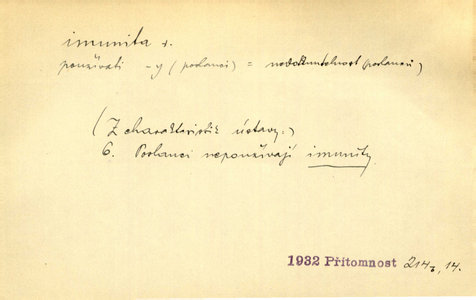 imunita ž.
používati -y (poslanci) = nedotknutelnost poslanců
(Z charakteristik ústavy:)
6. Poslanci nepoužívají imunity
1932 Přítomnost 214, 14.